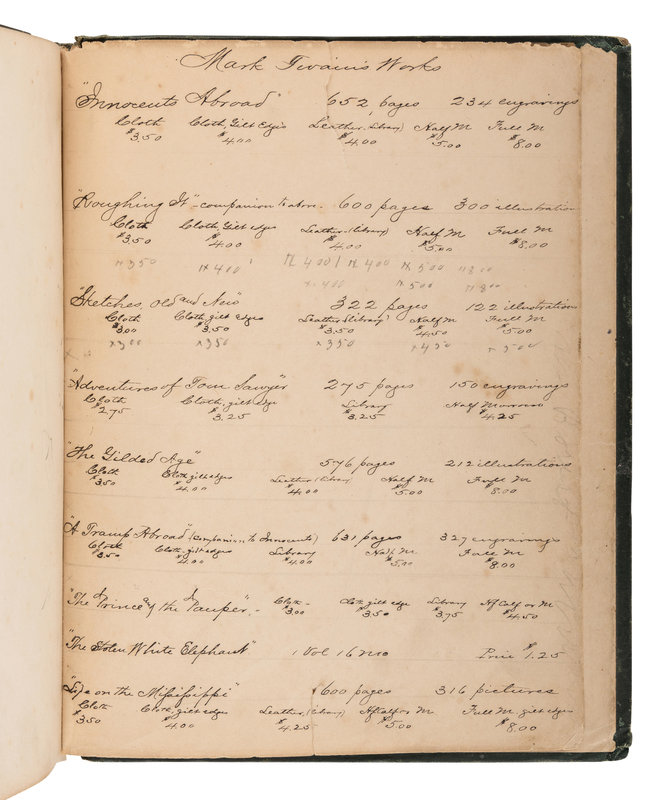 Mark Twain's Works
"Innocents Abroad" 652 pages 234 engravings
Cloth Cloth, Gilt Edges Leather (Library) Half M Full M
$3.50 $4.00 $4.00 $5.00 $8.00
"Roughing It" - companion to above. 600 pages 300 illustration
Cloth Cloth, Gilt edges Leather (library) Half M Full M
$3.50 $4.00 $4.00 $5.00 $8.00
350 400 400 400 500 800
400 500 800
"Sketches, Old and New" 322 pages 122 illustration
Cloth Cloth, gilt edges Leather (library) Half M Full M
$3.00 $3.50 $3.50 $4.50 $5.00
300 350 350 450 500
"Adventures of Tom Sawyer" 275 pages 150 engravings
Cloth Cloth, gilt edge Library Half Morocco
$2.75 $3.25 $3.25 $4.25
"The Gilded Age" 576 pages 212 illustrations
Cloth Cloth gilt edges Leather (library) Half M Full M
$3.50 $4.00 $4.00 $5.00 $8.00
"A Tramp Abroad" (companion to Innocents) 631 pages 327 engravings
Cloth Cloth, gilt edges Library Half M. Full M
$3.50 $4.00 $4.00 $5.00 $8.00
"The Prince & the Pauper," - Cloth - Cloth, gilt edge Library Hf Calf or M
$3.00 $3.50 $3.75 $4.50
"The Stolen White Elephant" 1 Vol 16 mo Price $1.25
"Life on the Mississippi" 600 pages 316 pictures
Cloth Cloth, gilt edges Leather, (library) Hf Calf or M Full M. gilt edges
$3.50 $4.00 $4.25 $5.00 $8.00